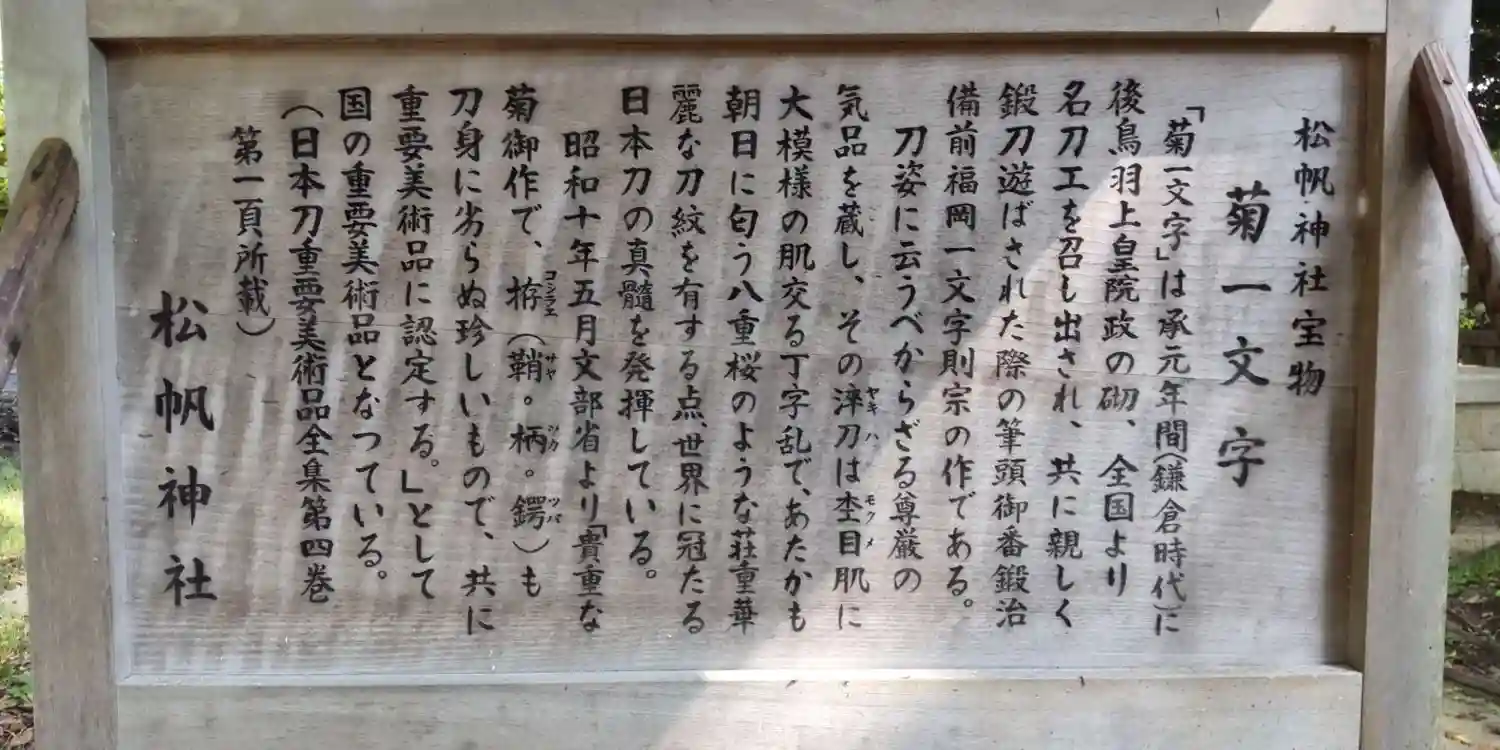 松帆神社宝物
菊一文字
「菊一文字」は承元年間(鎌倉時代)に
後鳥羽上皇院政の砌、全国より
名刀工を召し出され、共に親しく
鍛刀遊ばされた際の筆頭御番鍛治
備前福岡一文字則宗の作である。
刀姿に云うべからざる尊厳の
気品を蔵し、その淬刀は杢目肌に
ヤキハ
モクメ
大模様の肌交る丁字乱で、あたかも
朝日に匂う八重桜のような荘重華
麗な刀紋を有する点、世界に冠たる
日本刀の真髄を発揮している。
昭和十年五月文部省より「貴重な
菊御作で、拵(鞘。柄。鍔)も
コシラエ
サヤ
ツカ
ツバ
刀身に劣らぬ珍しいもので、共に
重要美術品に認定する。」として
国の重要美術品となつている。
(日本刀重要美術品全集第四巻
第一頁所載)
松帆神社